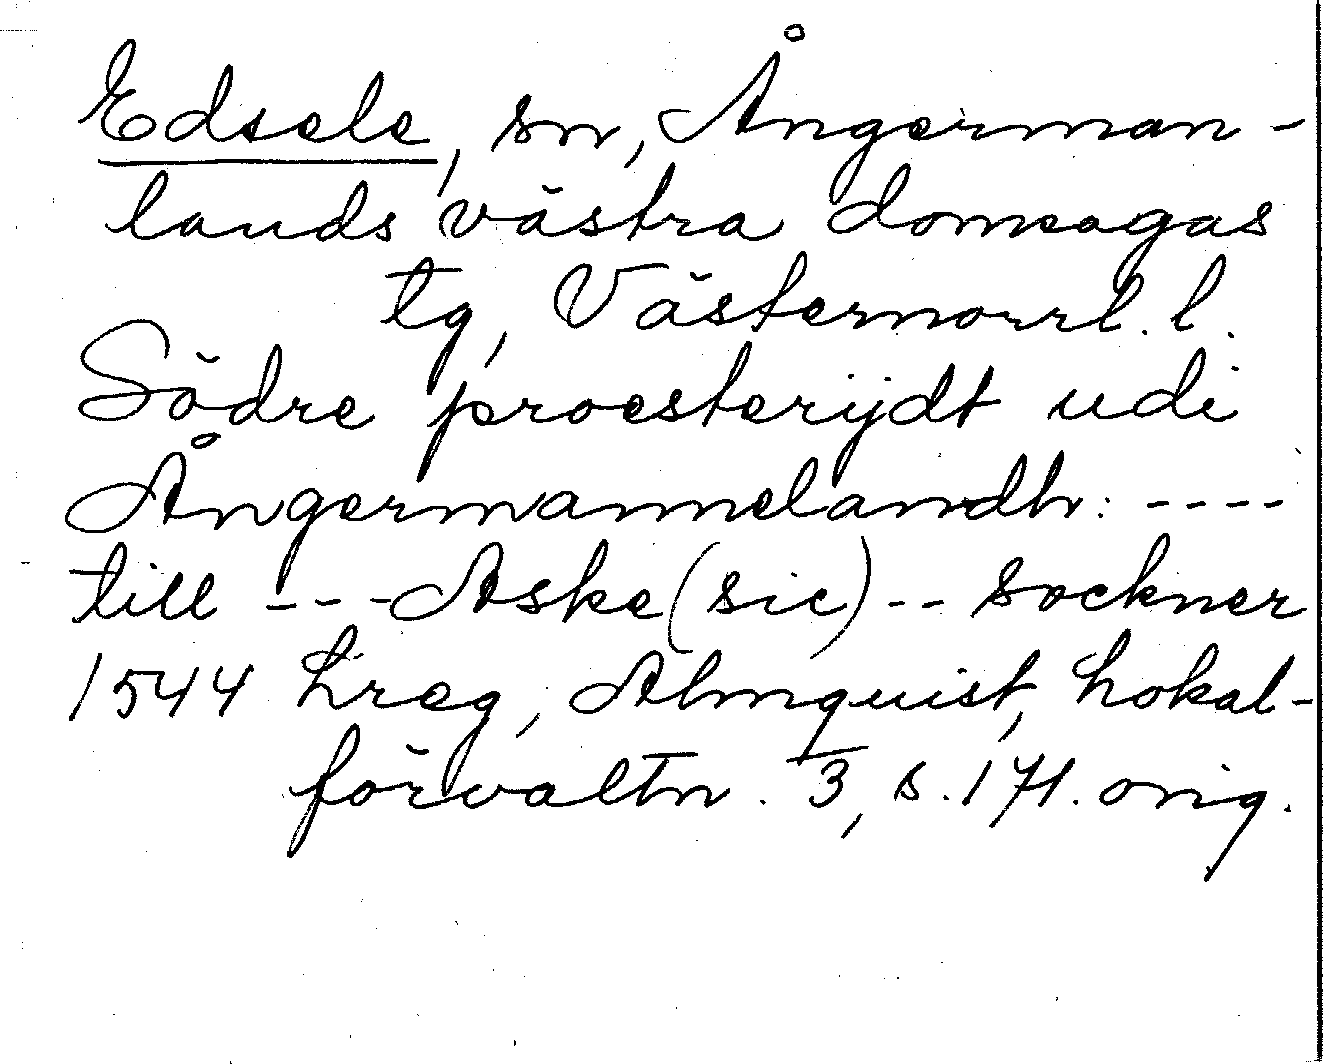 Edsele, sn, Ångerman-
lands västra domsagas
tg, Västernorrl. l.
Södre proesterijdt udi
Ångermannelandh: ----
till --- Aske (sic) -- sockner
1544 Lreg, Almquist, Lokal-
förvaltn. 3, s. 171. orig.